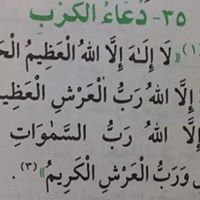 ٣٥- دُعَاءُ الكَرْبِ
(١) «لَا إِلَهَ إِلَّا اللهُ الْعَظِيمُ
إِلَّا اللهُ رَبُّ الْعَرْشِ
إِلَّا اللهُ رَبُّ السَّمٰوَاتِ
وَرَبُّ الْعَرْشِ الْكَرِيمُ» (٣).